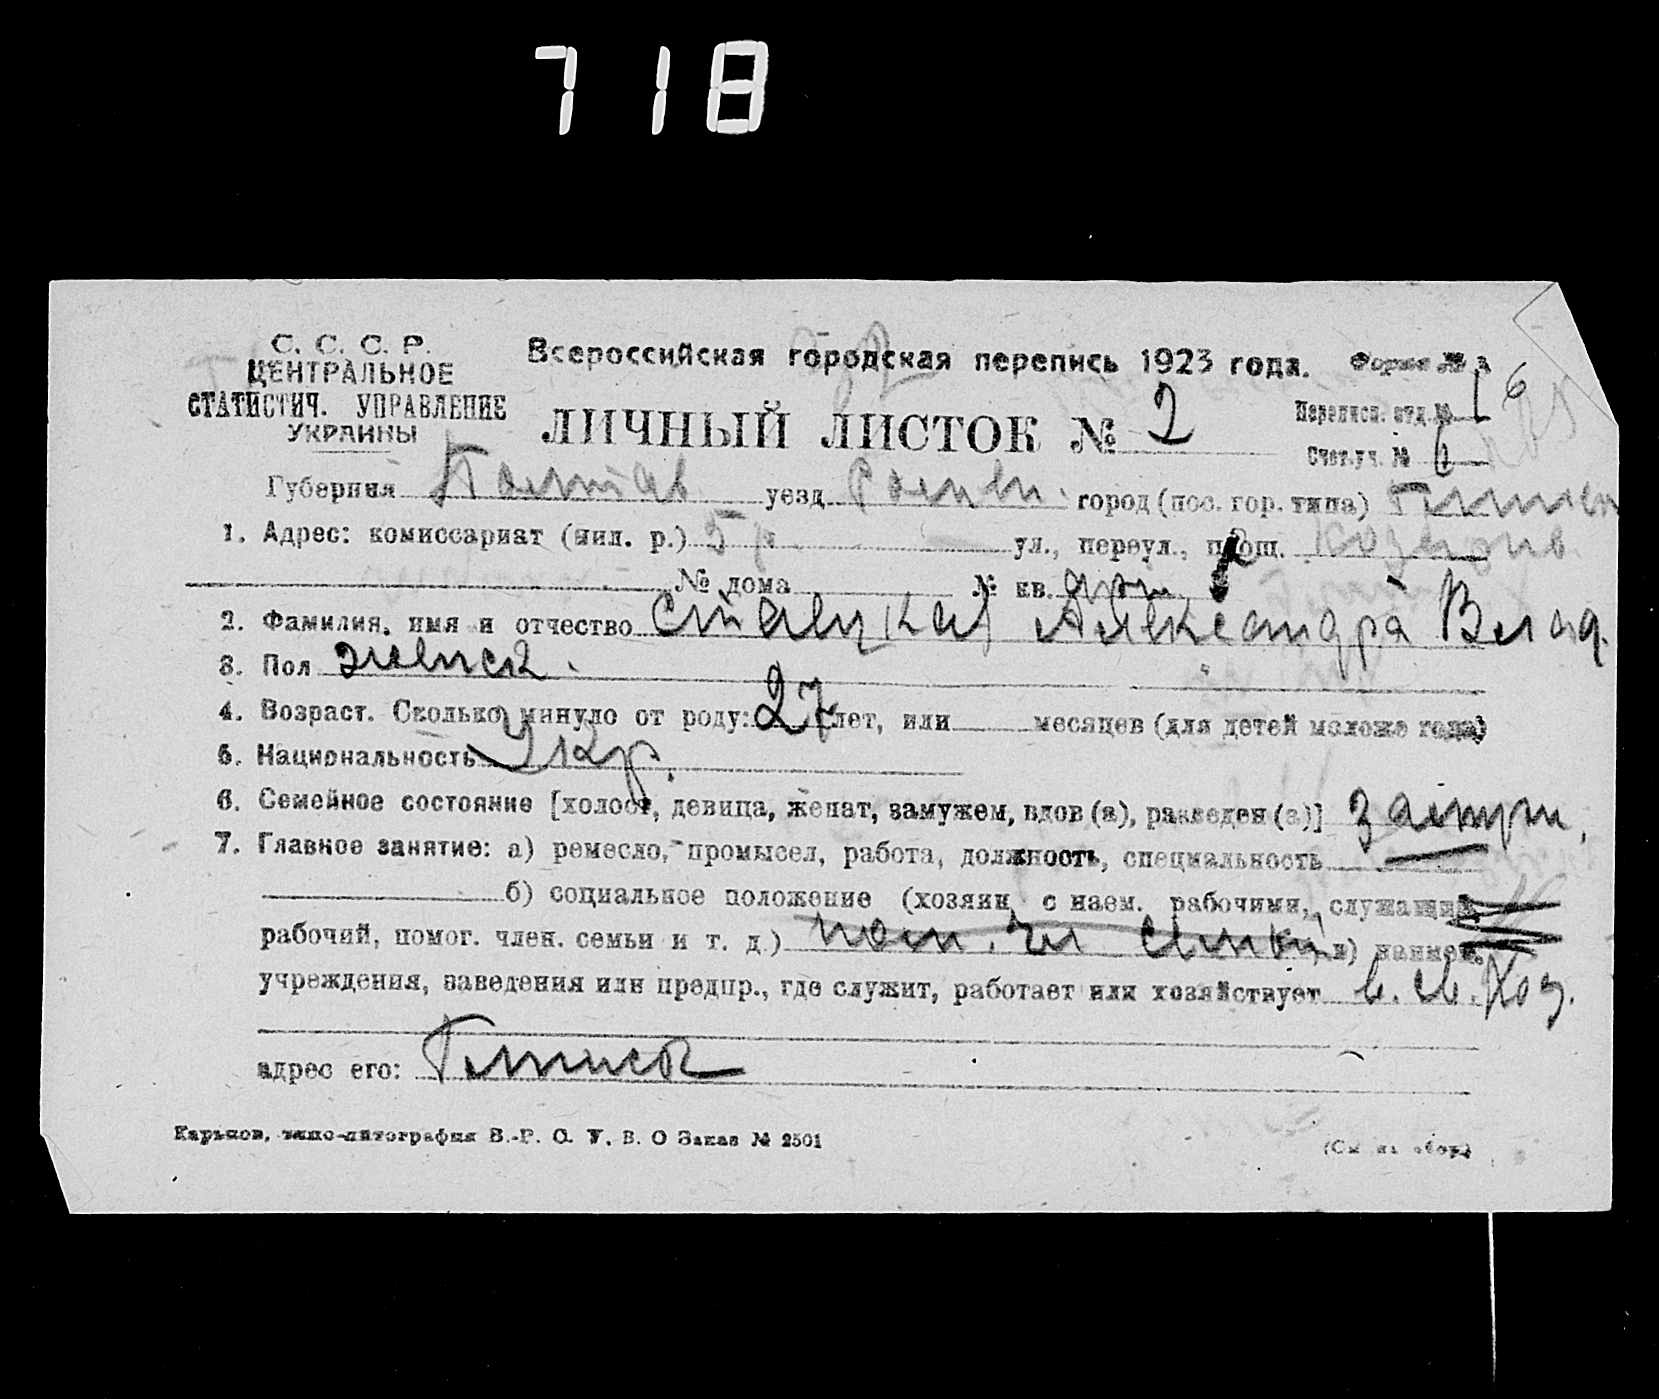 718
С. С. С. Р.
ЦЕНТРАЛЬНОЕ
СТАТИСТИЧ. УПРАВЛЕНИЕ
УКРАИНЫ
Всероссийская городская перепись 1923 года.
Форма № А
6
ЛИЧНЫЙ ЛИСТОК № 2
Переписн. отд. № 1
Счет. уч. № 6
Губерния Полтав уезд Ромен. город (пос. гор. типа)
1. Адрес: комиссариат (мил. р.) 5 р ул., переул., площ.
№ дома № кв.
2. Фамилия, имя и отчество Ставицкая Александра Влад.
3. Пол женск.
4. Возраст. Сколько минуло от роду: 27 лет, или месяцев (для детей моложе года)
5. Национальность Укр.
6. Семейное состояние [холост, девица, женат, замужем, вдов (а), разведен (а)] замуж.
7. Главное занятие: а) ремесло, промысел, работа, должность, специальность
б) социальное положение (хозяин с наем. рабочими, служащий,
рабочий, помог. член. семьи и т. д.) пом. чл семьи в) наимен.
учреждения, заведения или предпр., где служит, работает или хозяйствует в. св. Хоз.
адрес его: Глинск
Харьков, типо-литография В.-Р. С. У. В. О Заказ № 2501
(См на обор.)